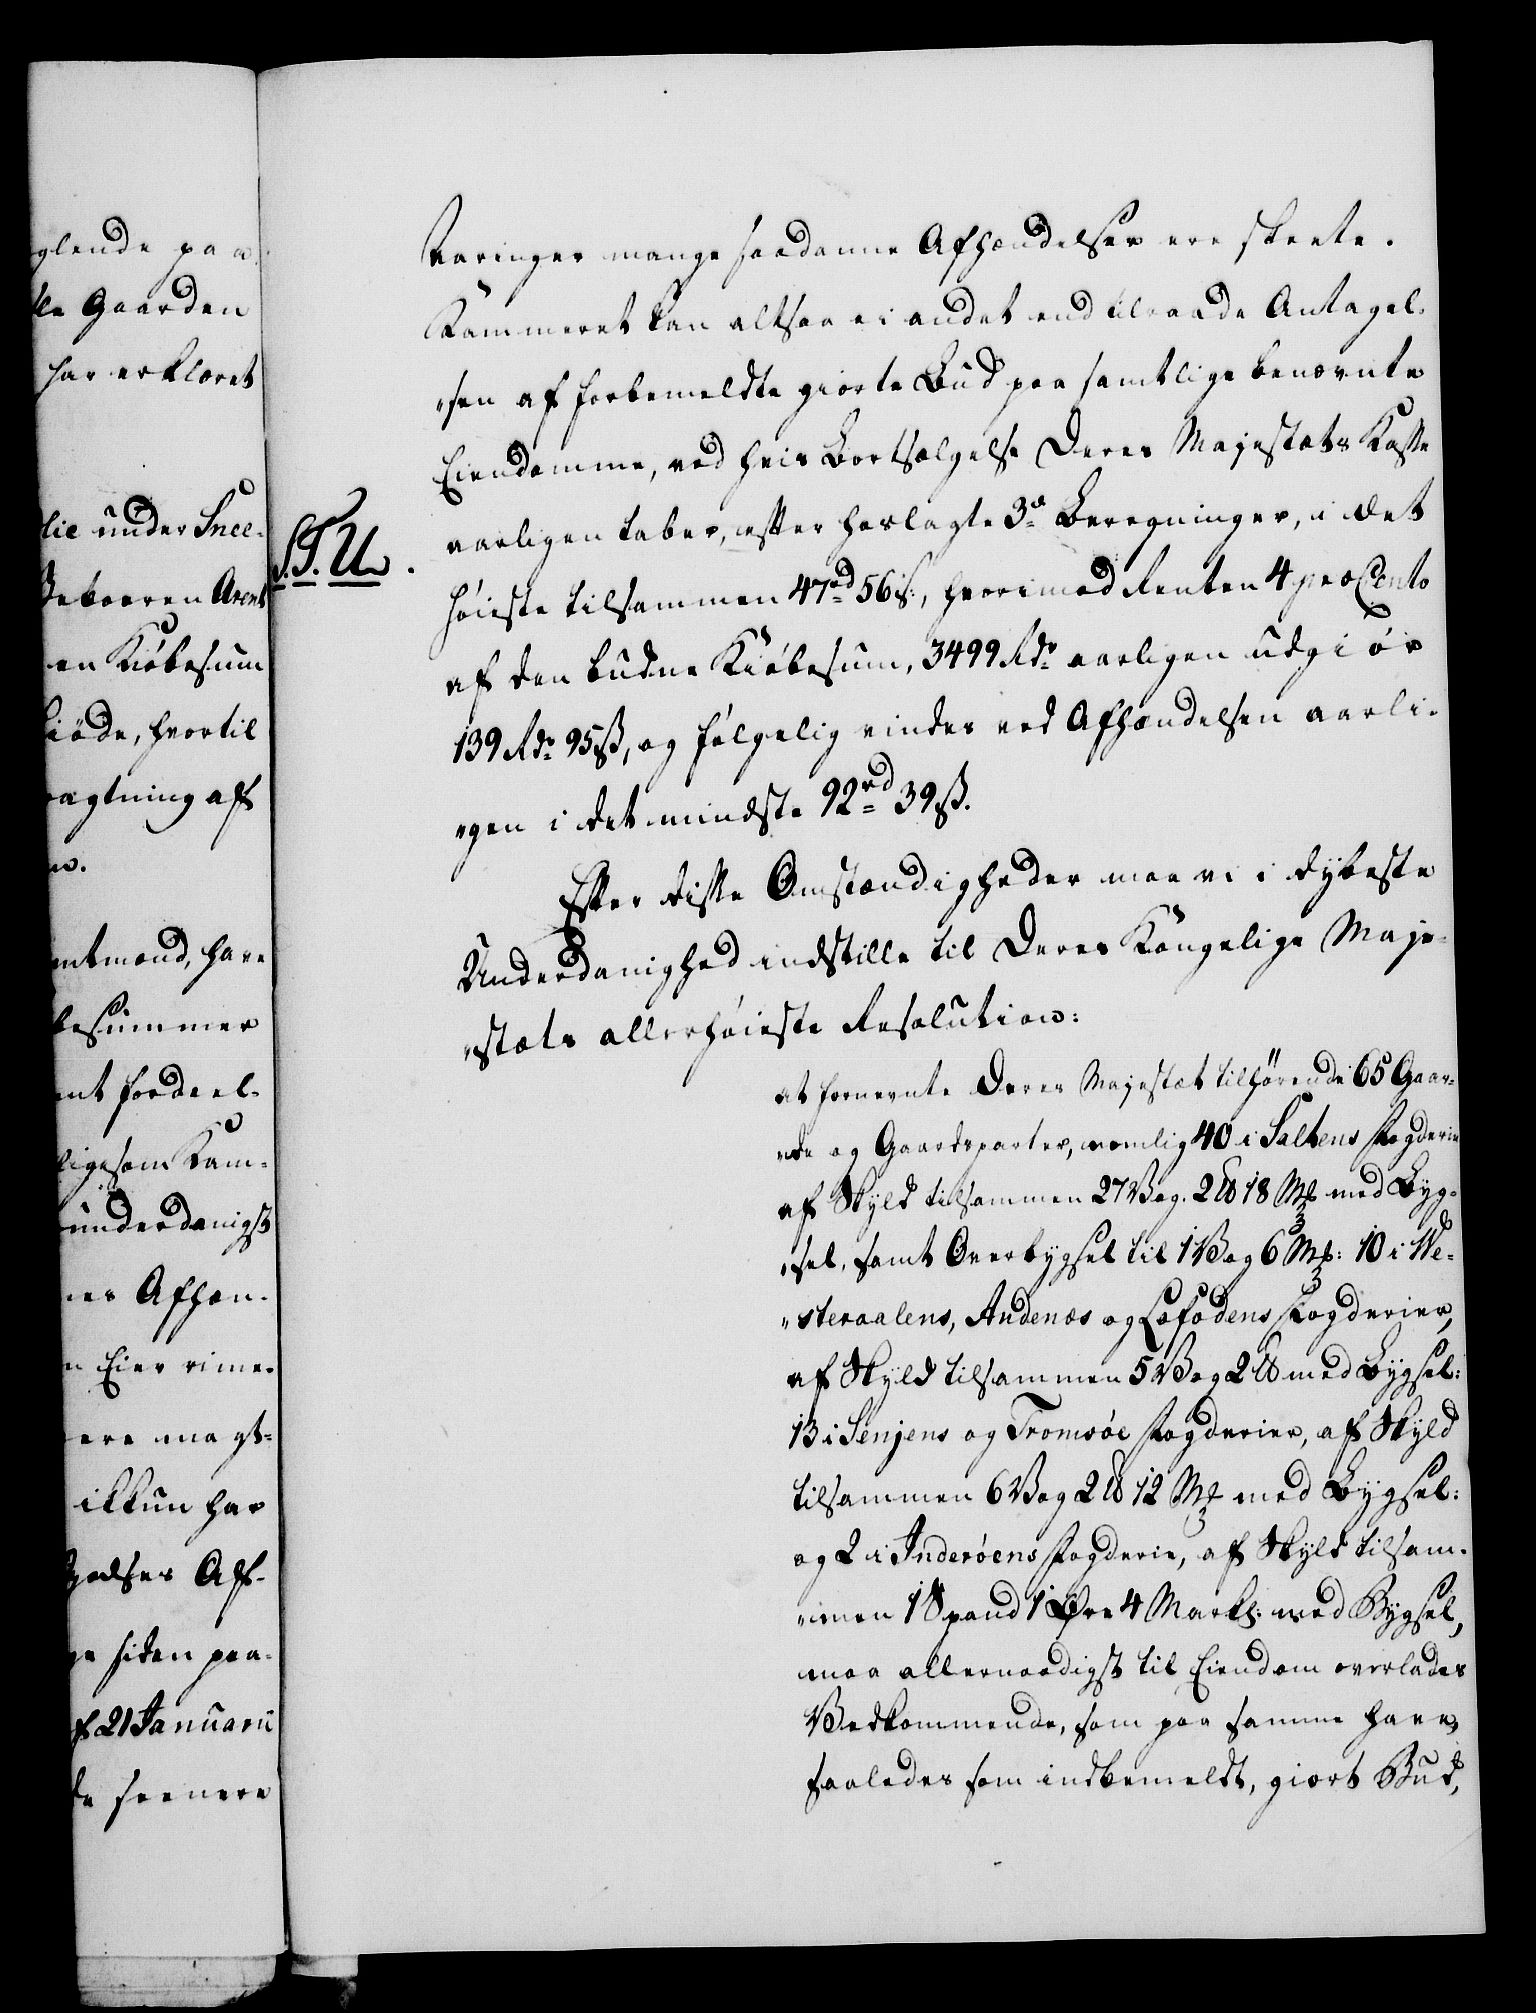 glende paa
lle Gaarden
har erklæret
lie under Snee-
Beboeren Arent
en Kiøbesum
biøde, hvortil
agtning af
mtmand, have
besummer
mt fordeel-
ligesom Kam-
underdanigst
nes Afhæn-
n Eier vime-
ere magt-
ikkun har
Godses Af-
ge siden paa-
f 21 Januarii
de seenere
ræringer mange saadanne Afhændelser ere skeete.
Kammeret kan altsaa ei andet end tilraade Antagel-
"sen af forbemeldte giorte Bud paa samtlige benævnte
Eiendomme, ved hvis Bortsælgelse Deres Majestæts Kasse
aarligen taber, efter hoslagte 3de Beregninger, i det
S.T.U.
høieste tilsammen 47rd 56 s:, hvorimod Renten 4 pro Cento
af den budne Kiøbesum, 3499 Rdr. aarligen udgiør
139 Rdr. 95 ß, og følgelig vindes ved Afhændelsen aarli-
"gen i det mindste 92rd 39 ß.
Efter disse Omstændigheder maa vi i dybeste
Underdanighed indstille til Deres Kongelige Maje-
"stæts allerhøieste Resolution:
at fornevnte Deres Majestæt tilhørende 65 Gaar-
"de og Gaardsparter, nemlig 40 i Saltens Fogderie
af Skyld tilsammen 27 Vog. 2 ℔ 18 Mk med Byg-
"sel, samt Overbygsel til 1 Vog 6 Mk: 10 i We-
"steraalens, Andenæs og Lofodens Fogderier,
af Skyld tilsammen 5 Vog 2 ℔ med Bygsel:
13 i Senjens og Tromsøe Fogderier, af Skyld
tilsammen 6 Vog 2 ℔ 12 Mk med Bygsel:
og 2 i Inderøens Fogderie, af Skyld tilsam-
"men 1 Spand 1 Øre 4 Markl: med Bygsel,
maa allernaadigst til Eiendom overlades
Vedkommende, som paa samme have,
saaledes som indbemeldt, giort Bud,